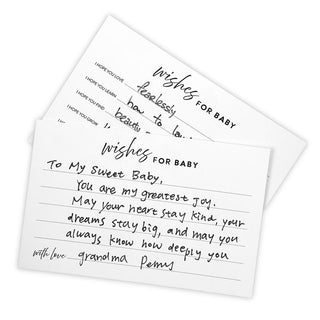 wishes FOR BABY
I HOPE YOU LOVE fearlessly
I HOPE YOU LEARN how to
I HOPE YOU FIND beauty
I HOPE YOU GROW
wishes FOR BABY
To My Sweet Baby,
You are my greatest joy.
May your heart stay kind, your
dreams stay big, and may you
always know how deeply you
with love grandma